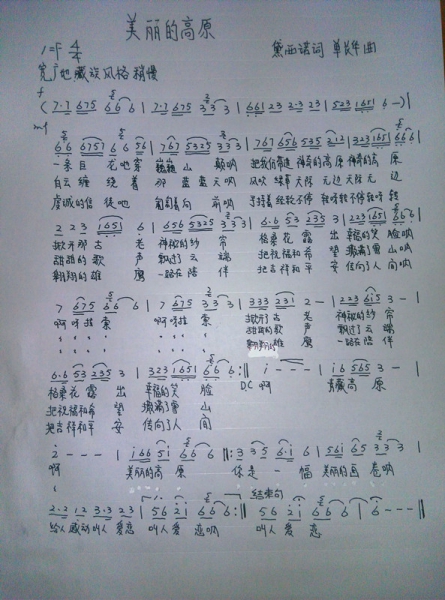 美丽的高原
1=F 4/4
黛西诺词 单长华 曲
宽广地 藏族风格 稍慢
f
(7·1 675 6 6 6 | 7·1 675 3 3 3 | 661 23 2·3 23 | 523 1651 6 -)|
mf
一条 花 地 巍巍 山 呐 把我们带进 神奇的高原 神奇的高 原
白云 缠 绕 着 那 蓝蓝 天呐 天际 无边 天际 无 边
虔诚的信 徒 地 匍匐着向 前呐 手转着经轮不停
2 2 3 1651 6 | 656 5325 3 3 3 | 6·6 53 235 3 | 223 1651 6 6 6 |
掀开那古 老 神秘的纱 帘 格桑花 露 出 幸福的笑 脸呐
甜甜的歌 声 飘过了云 端 把祝福和希 望 撒满了雪 山呐
翱翔的雄 鹰 一路在陪 伴 把吉祥和平 安 传向了人 间呐
7 675 6 6 6 | 7 675 3 3 3 | 333 231 2 - | 223 615 3 - |
啊 呀拉 索 啊 呀拉 索 掀开了古 老 神秘的纱 帘
甜甜的歌 声 飘过了云 端
翱翔的雄 鹰 一路在陪 伴
6·6 53 235 3 | 323 1651 6 6 6 :|| i - - - | i 6 565 3 - |
格桑花 露 出 幸福的笑 脸 D.C 啊 青藏高 原
把祝福和希 望 撒满了雪 山
把吉祥和平 安 传向了人 间
2 - - - | i 66 5i 6 6 6 ||: 3 3 5 6·i 6 | 56i 65 3 3 3 |
啊 美丽的高 原 你是 一 幅 美丽的画 卷呐
结束句
2·2 12 3·3 23 | 56 2i 6 6 6 :|| 56 2i 6 6 6 | 6 - - - ||
给人感动叫人 爱恋 叫人爱 恋呐 叫人 爱 恋